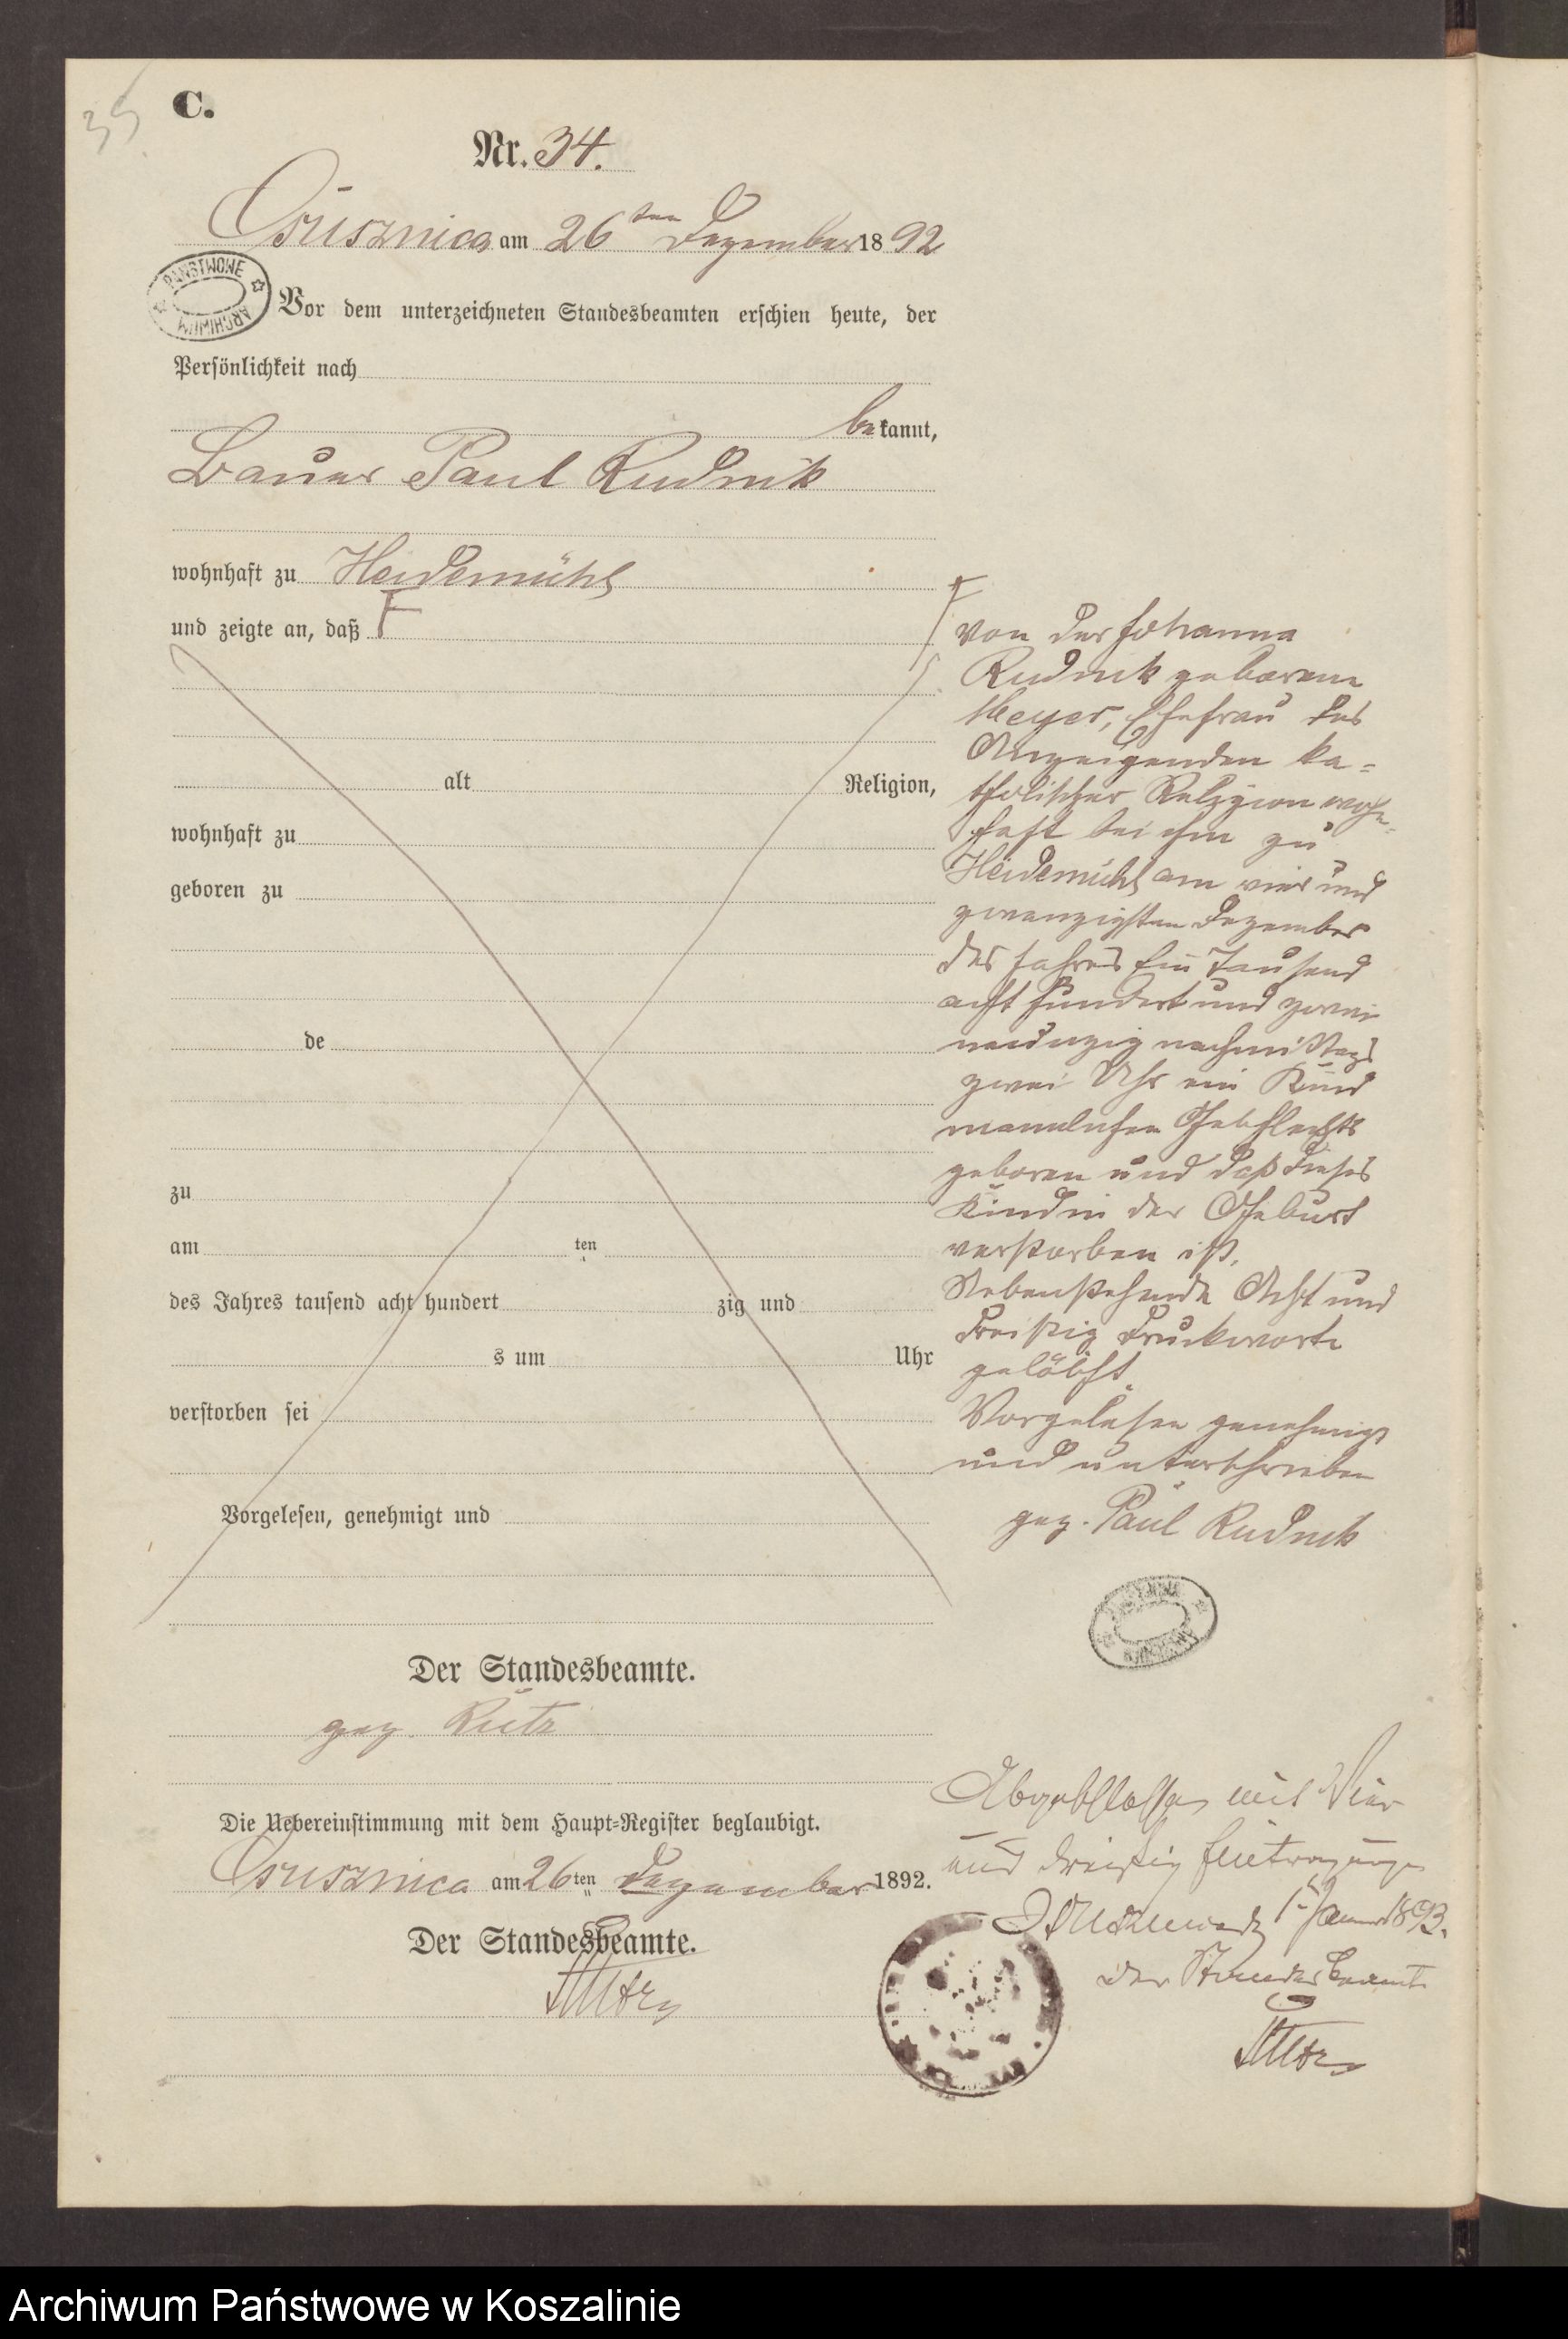 35
C.
Nr. 34.
Ossusznica am 26ten Dezember 1892
PAŃSTWOWE ARCHIWUM
Vor dem unterzeichneten Standesbeamten erschien heute, der
Persönlichkeit nach
bekannt,
Bauer Paul Rudnik
wohnhaft zu Heidemühl
und zeigte an, daß F
alt Religion,
wohnhaft zu
geboren zu
de
zu
am ten
des Jahres tausend acht hundert zig und
s um Uhr
verstorben sei
Vorgelesen, genehmigt und
F von der Johanna
Rudnik geborene
Meyer, Ehefrau des
Anzeigenden ka-
tholischer Religion wohn-
haft bei ihm zu
Heidemühl am vier und
zwanzigsten Dezember
des Jahres Ein Tausend
acht hundert und zwei
neunzig nachmittags
zwei Uhr ein Kind
mannlichen Geschlechts
geboren und daß dieses
Kind in der Geburt
verstorben ist.
Nebenstehende Acht und
dreißig Druckworte
gelöscht.
Vorgelesen genehmigt
und unterschrieben
gez. Paul Rudnik
Der Standesbeamte.
gez. Rutz
Die Uebereinstimmung mit dem Haupt-Register beglaubigt.
Ossusznica am 26ten Dezember 1892.
Der Standesbeamte.
Rutz
Abgeschlossen mit Vier
und dreißig Eintragungen
1. Januar 1893.
Der Standesbeamte
Rutz
Archiwum Państwowe w Koszalinie